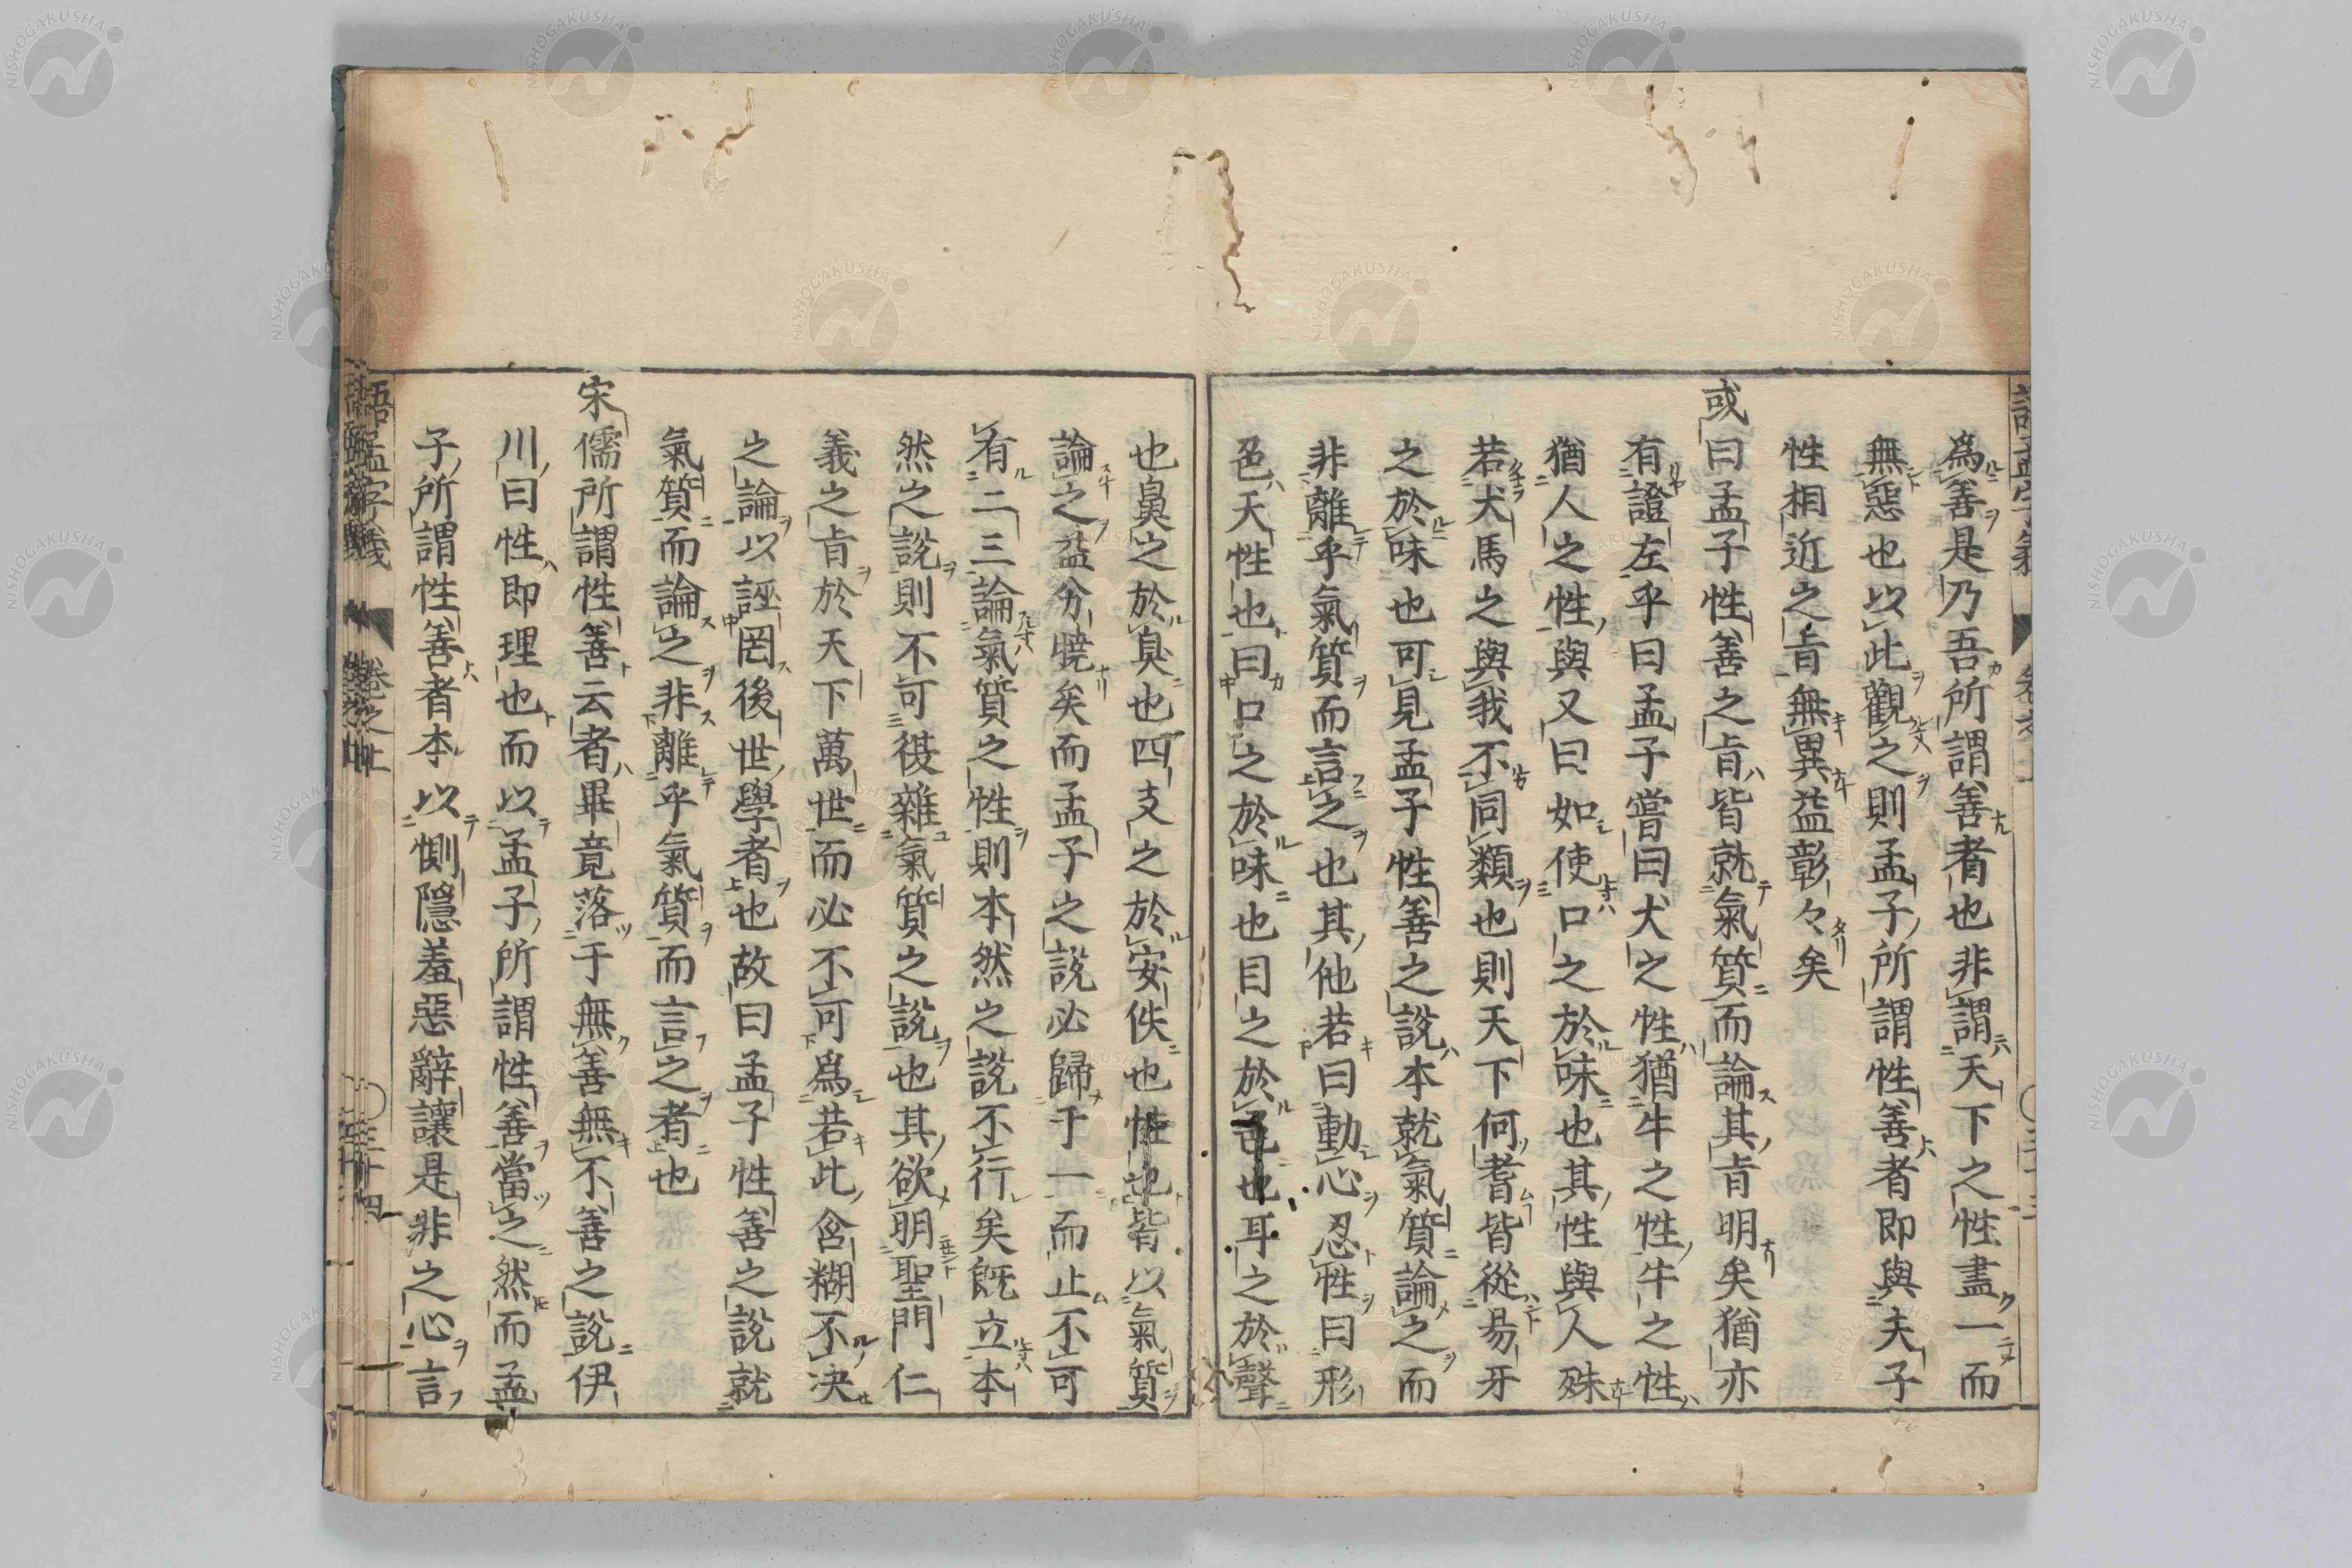 爲善是乃吾所謂善者也非謂天下之性盡一而
無惡也以此觀之則孟子所謂性善者即與夫子
性相近之㫖無異益彰々矣
或曰孟子性善之㫖皆就氣質而論其㫖明矣猶亦
有證左乎曰孟子嘗曰犬之性猶牛之性牛之性
猶人之性與又曰如使口之於味也其性與人殊
若犬馬之與我不同類也則天下何耆皆從易牙
之於味也可見孟子性善之說本就氣質論之而
非離乎氣質而言之也其他若曰動心忍性曰形
色天性也曰口之於味也目之於色也耳之於聲
也鼻之於臭也四支之於安佚也性也皆以氣質
論之益分曉矣而孟子之說必歸于一而止不可
有二三論氣質之性則本然之說不行矣既立本
然之說則不可復雜氣質之說也其欲明聖門仁
義之㫖於天下萬世而必不可爲若此含糊不决
之論以誣罔後世學者也故曰孟子性善之說就
氣質而論之非離乎氣質而言之者也
宋儒所謂性善云者畢竟落于無善無不善之說伊
川曰性即理也而以孟子所謂性善當之然而孟
子所謂性善者本以惻隱羞惡辭讓是非之心言
語孟字義
卷之上
三十四
NISHOGAKUSHA